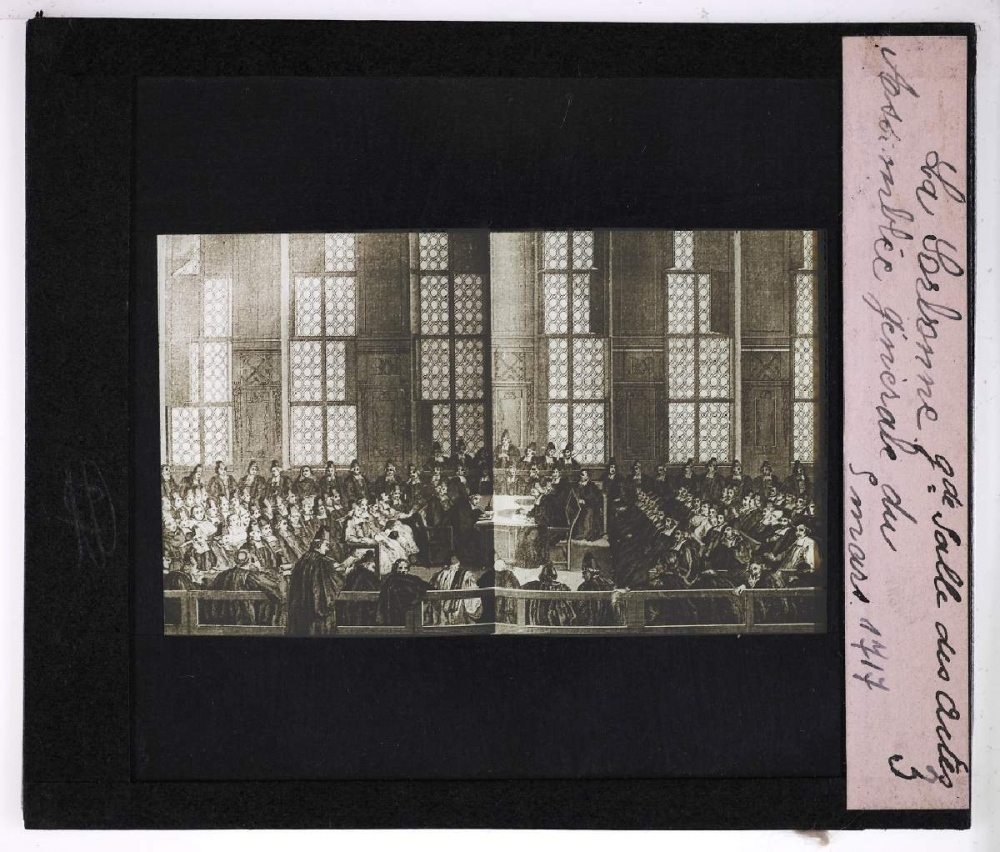 La Sorbonne gde Salle des Actes
Assemblée générale du
5 mars 1717
3